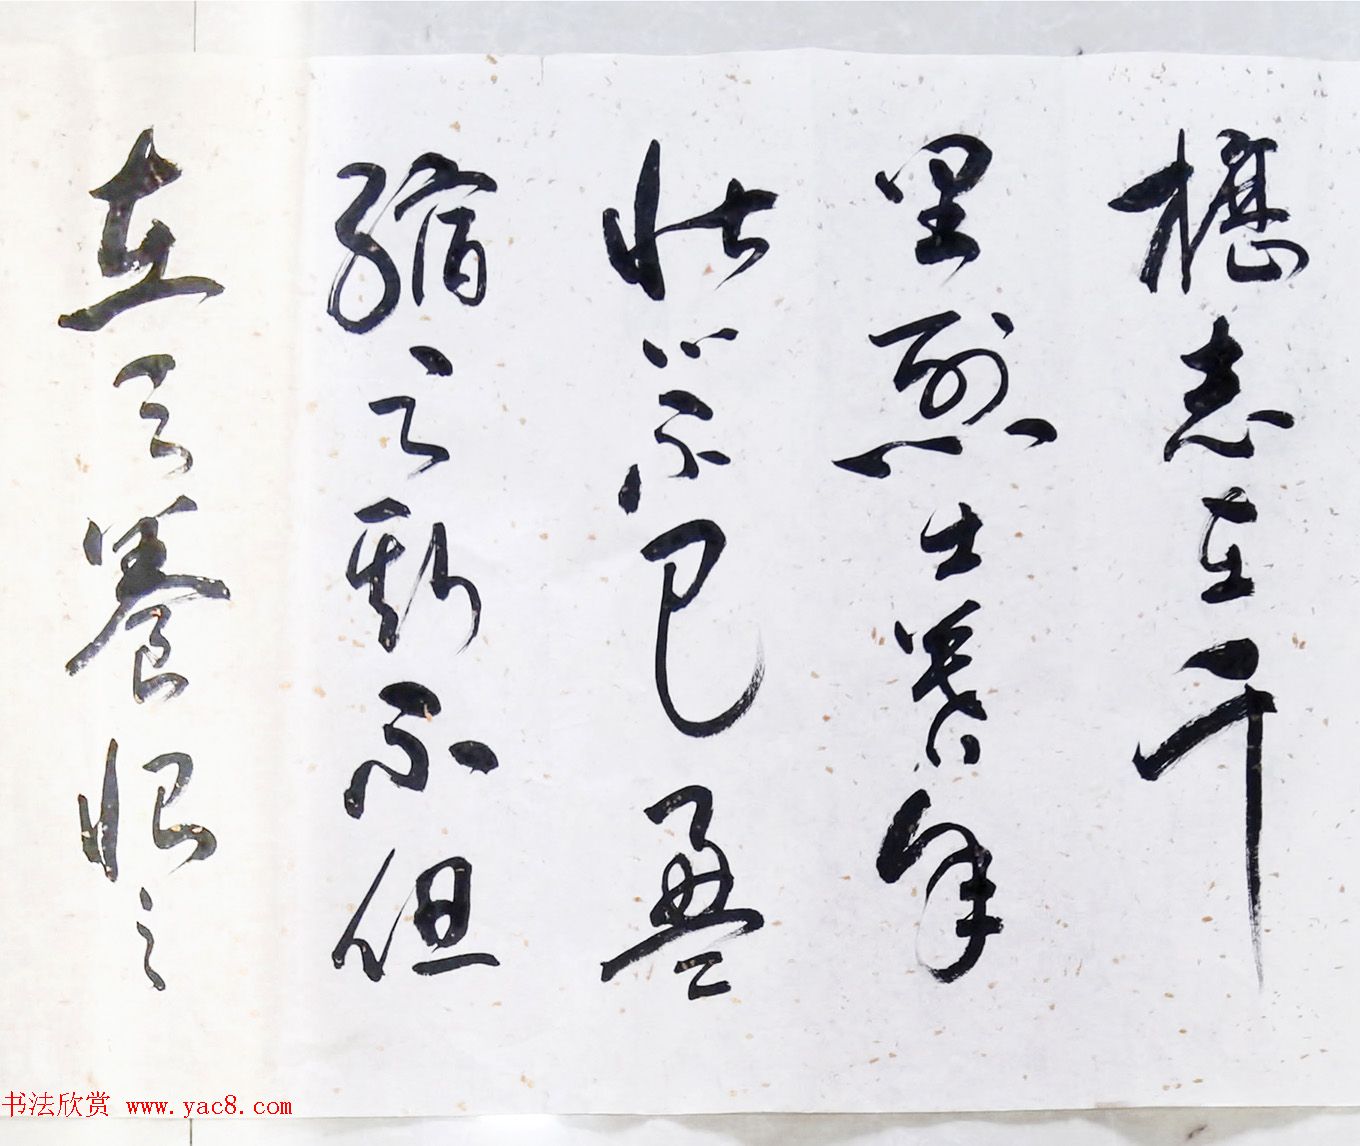 櫪志在千
里烈士暮年
壯心不已盈
縮之期不但
在天養怡之
书法欣赏 www.yac8.com